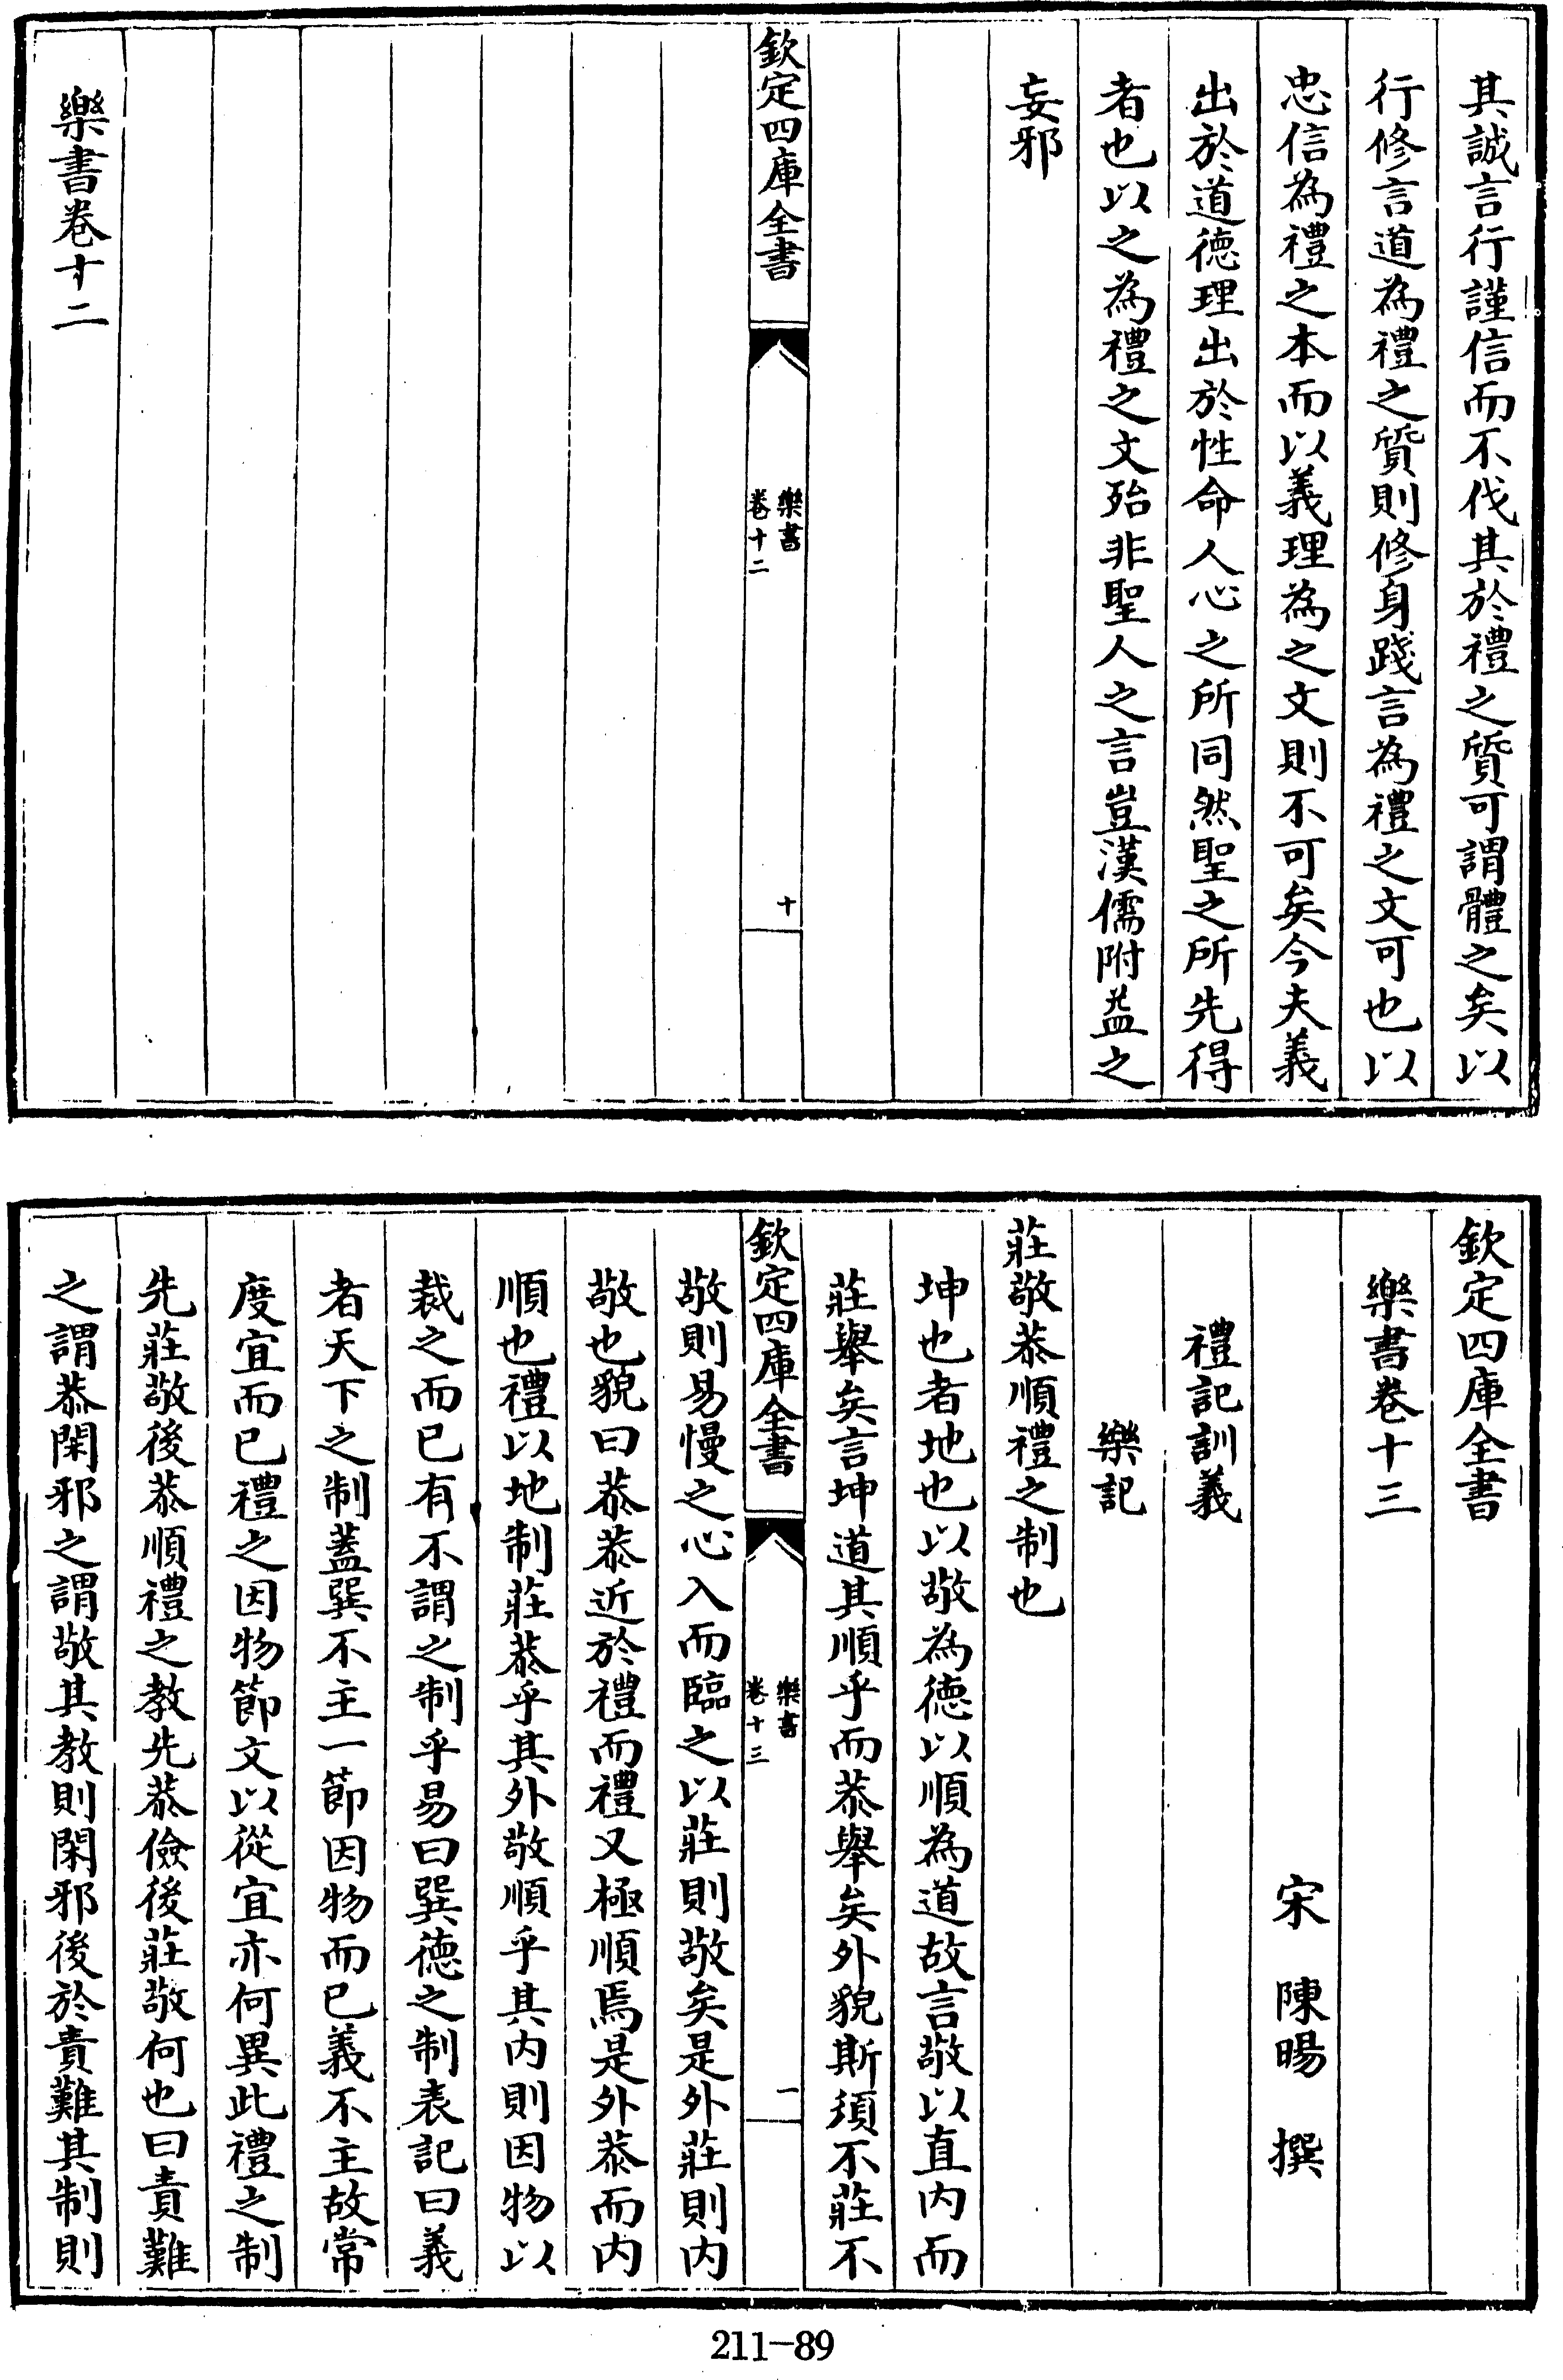 其誠言行謹信而不伐其於禮之質可謂體之矣以
行修言道為禮之質則修身踐言為禮之文可也以
忠信為禮之本而以義理為之文則不可矣今夫義
出於道德理出於性命人心之所同然聖之所先得
者也以之為禮之文殆非聖人之言豈漢儒附益之
妄邪
欽定四庫全書
樂書
卷十二
十
樂書卷十二
欽定四庫全書
樂書卷十三
宋 陳暘 撰
禮記訓義
樂記
莊敬恭順禮之制也
坤也者地也以敬為德以順為道故言敬以直內而
莊舉矣言坤道其順乎而恭舉矣外貌斯須不莊不
欽定四庫全書
樂書
卷十三
一
敬則易慢之心入而臨之以莊則敬矣是外莊則內
敬也貌曰恭恭近於禮而禮又極順焉是外恭而內
順也禮以地制莊恭乎其外敬順乎其內則因物以
裁之而已有不謂之制乎易曰巽德之制表記曰義
者天下之制蓋巽不主一節因物而已義不主故常
度宜而已禮之因物節文以從宜亦何異此禮之制
先莊敬後恭順禮之教先恭儉後莊敬何也曰責難
之謂恭閑邪之謂敬其教則閑邪後於責難其制則
211-89